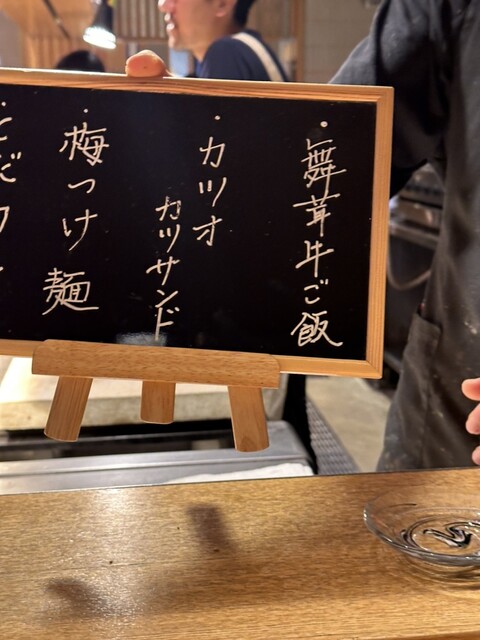 ・舞茸牛ご飯
・カツオ
カツサンド
・梅つけ麺